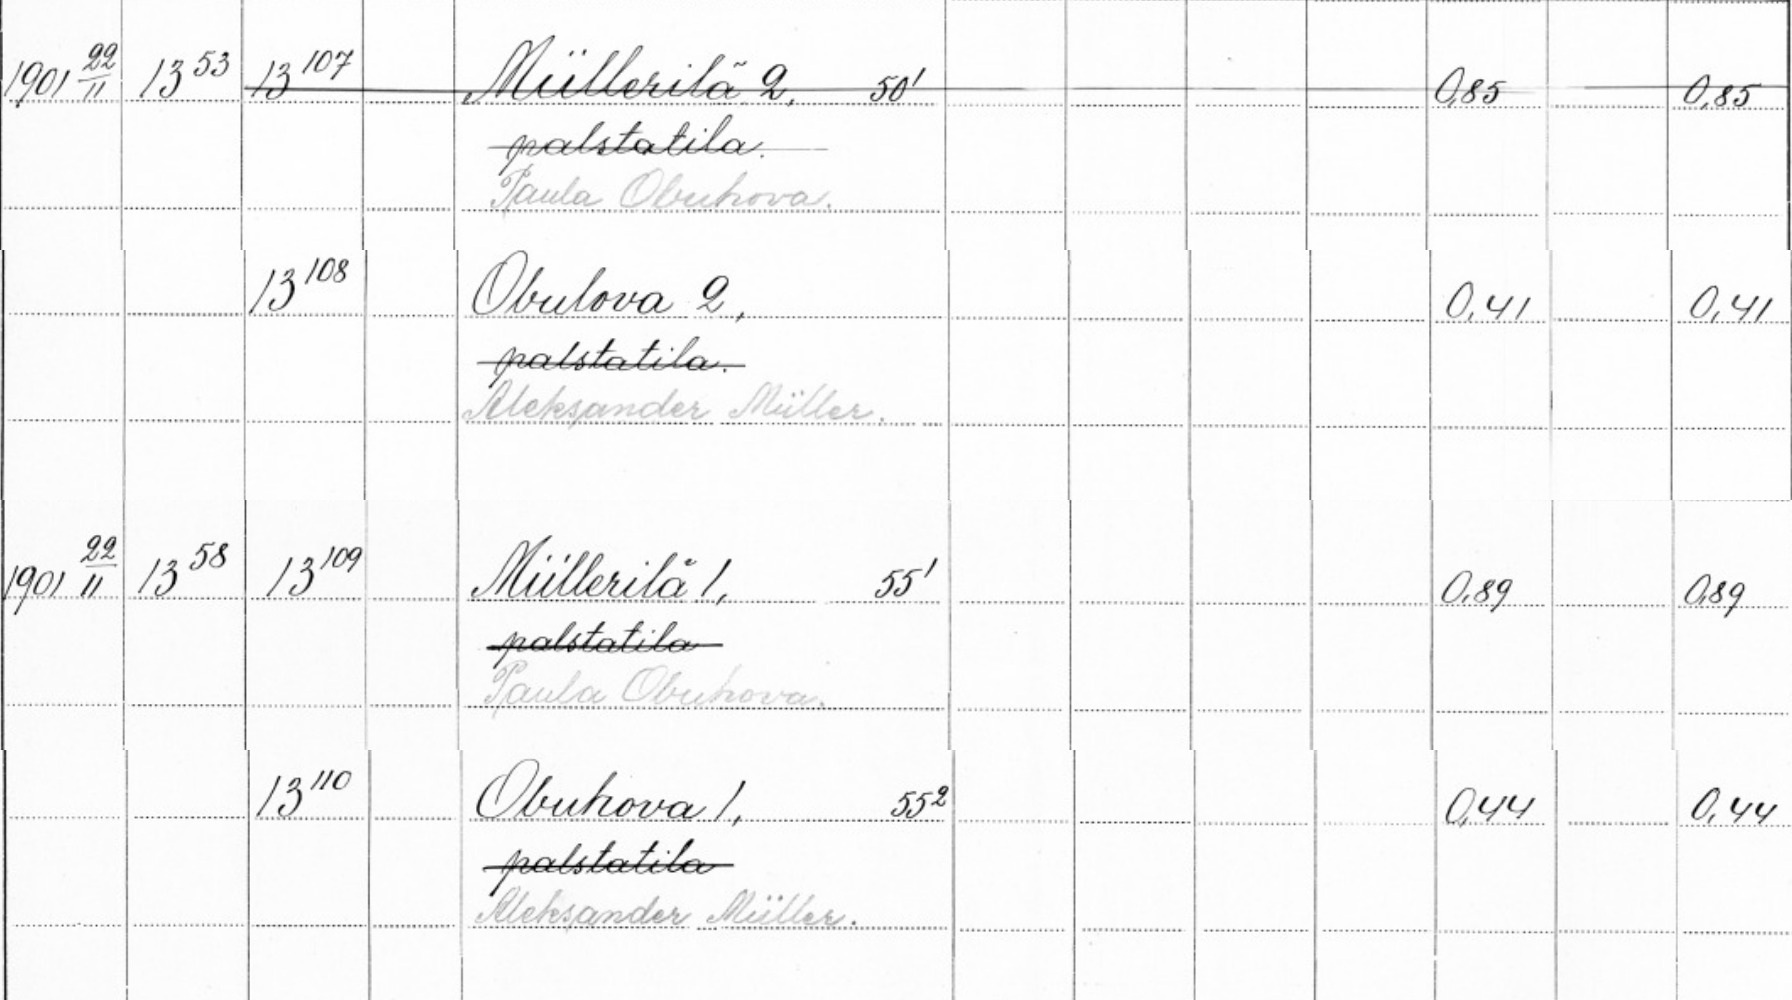 1901 22/11 13 53 13 107 Müllerilä 2, 50 1 0,85 0,85
palstatila.
Paula Obuhova.
13 108 Obulova 2, 0,41 0,41
palstatila.
Aleksander Müller.
1901 22/11 13 58 13 109 Müllerilä 1, 55 1 0,89 0,89
palstatila
Paula Obuhova.
13 110 Obuhova 1, 55 2 0,44 0,44
palstatila
Aleksander Müller.